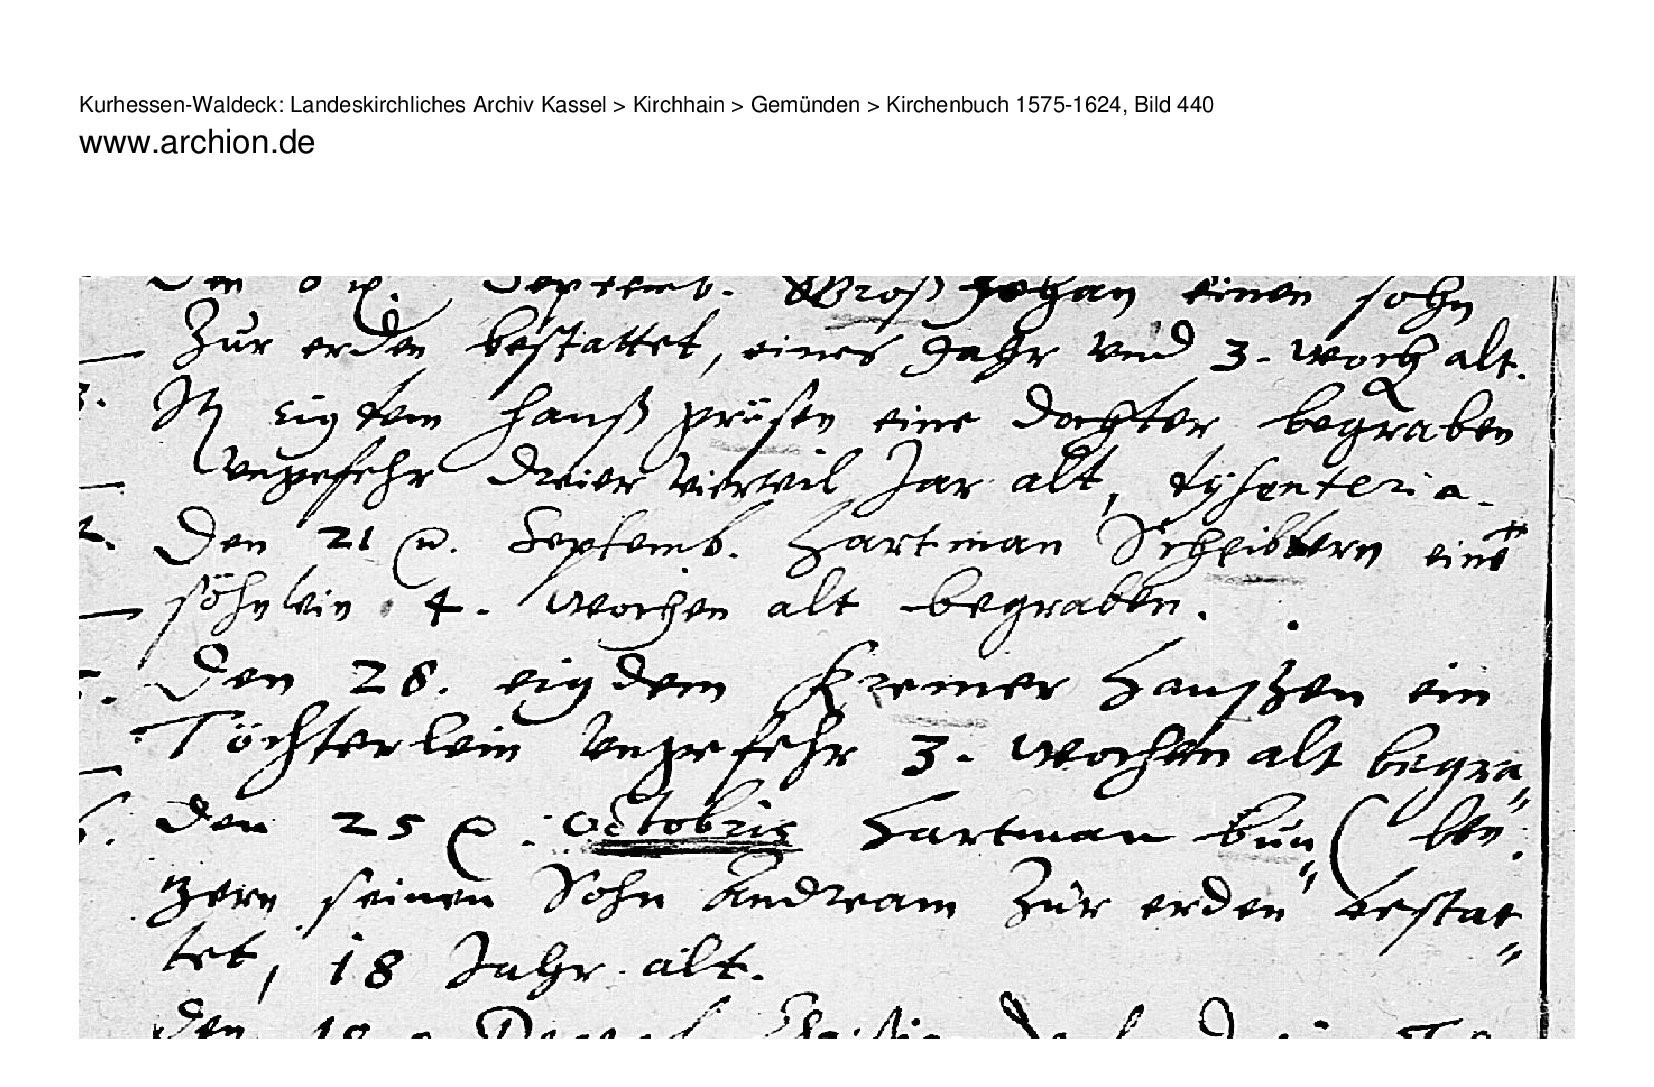 Kurhessen-Waldeck: Landeskirchliches Archiv Kassel > Kirchhain > Gemünden > Kirchenbuch 1575-1624, Bild 440
www.archion.de
Den Septemb. Groß Johan einen sohn
Zur erden bestattet, eines Jahr vnd 3. woch alt.
3. It eigdem hanß prüsen eine dochter begraben
vngefehr dreier vierteil Jar alt, dysenteria.
Den 21 Septemb. Hartman einē
söhnlein 4. wochen alt begraben.
Den 28. eigdem Kremer Hanßen ein
Töchterlein vngefehr 3. wochen alt begra„
den 25 Octobris Hartman bun„ ( ben.
zern seinen Sohn Andream Zur erden bestat„
tet, 18 Jahr alt.
den 18